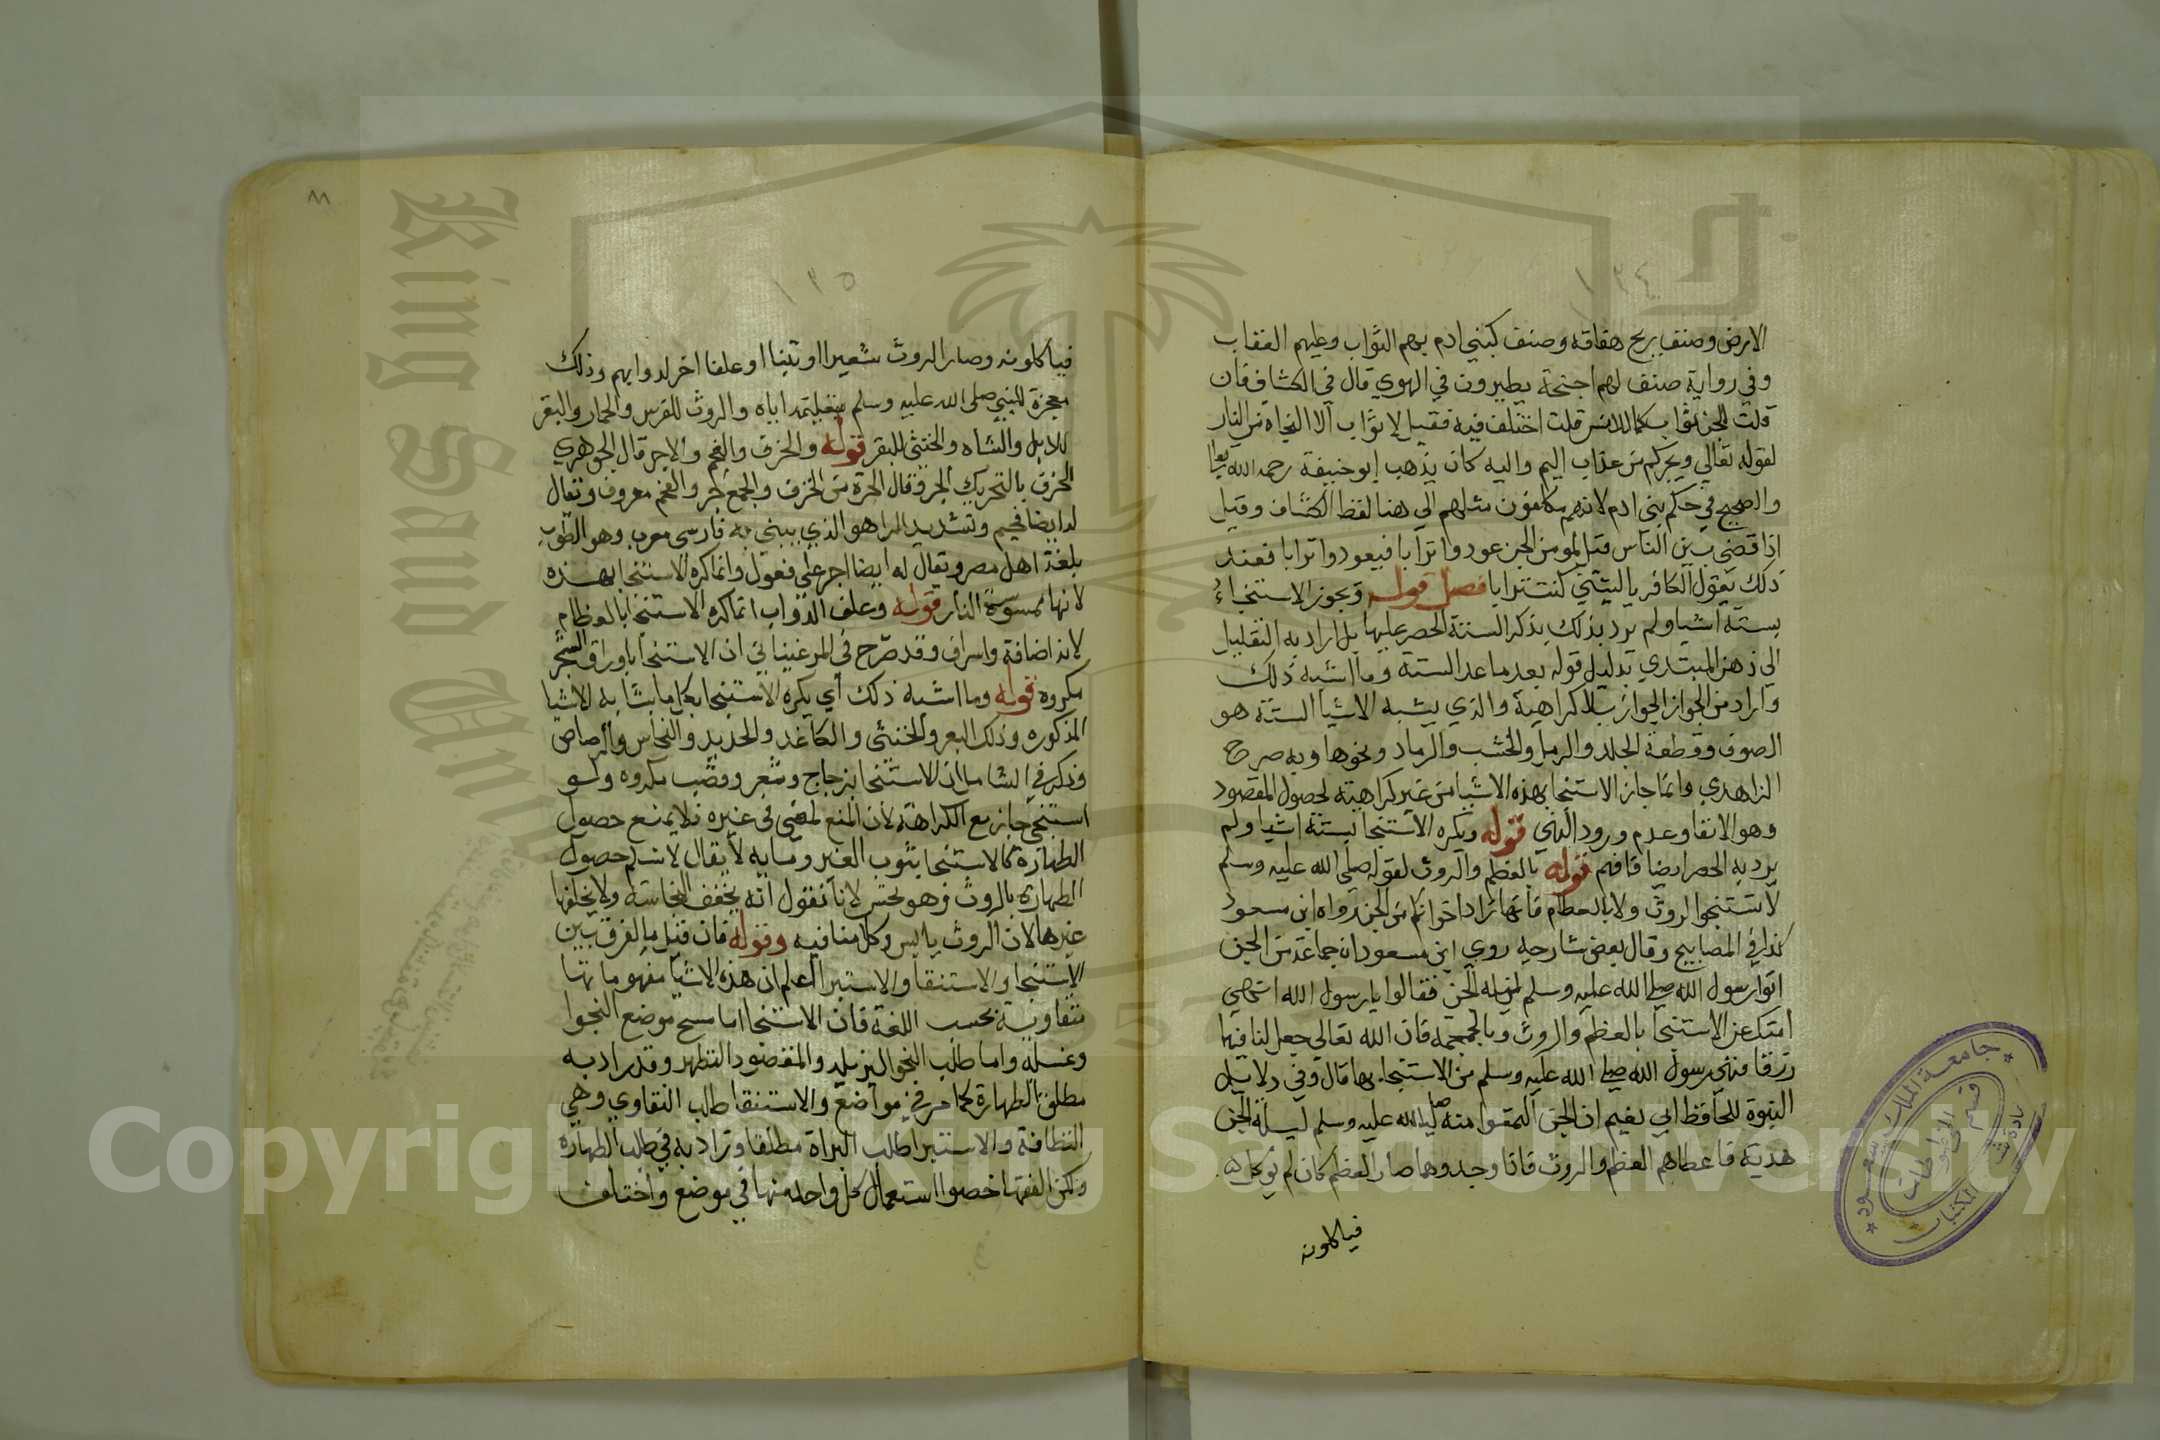 ١٣٤
الارض وصنف ريح هفافة وصنف كبني ادم لهم الثواب وعليهم العقاب
وفي رواية صنف لهم اجنحة يطيرون في الهوي قال في الكشاف فان
قلت للجن ثواب كما للانس قلت اختلف فيه فقيل لا ثواب الا النجاة من النار
لقوله تعالي ويجركم من عذاب اليم واليه كان يذهب ابو حنيفة رحمه الله تعالي
والصحيح في حكم بني ادم لانهم مكلفون مثلهم الي هنا لفظ الكشاف وقيل
اذا قضي بين الناس قيل لمومن الجن عودوا ترابا فيعودوا ترابا فعند
ذلك يقول الكافر ياليتني كنت ترابا فصل قوله ويجوز الاستنجاء
بستة اشيا ولم يرد بذلك بذكر الستة الحصر عليها بل اراد به التقليل
الي ذهن المبتدي بدليل قوله بعد ما عد الستة وما اشبه ذلك
واراد من الجواز الجواز بلا كراهية والذي يشبه الاشيا الستة هو
الصوف وقطعة الجلد والرمل والخشب والرماد ونحوها وبه صرح
الزاهدي وانما جاز الاستنجا بهذه الاشيا من غير كراهية لحصول المقصود
وهو الانقا وعدم ورود النهي قوله ويكره الاستنجا بستة اشيا ولم
يرد به الحصر ايضا فافهم قوله بالعظم والروث لقوله صلي الله عليه وسلم
لا تستنجوا الروث ولا بالعظام فانها زاد اخوانكم من الجن رواه ابن مسعود
كذا في المصابيح وقال بعض شارحيه روي ابن مسعود ان جماعة من الجن
اتوا رسول الله صلي الله عليه وسلم ليلة الجن فقالوا يا رسول الله انهي
امتك عن الاستنجا بالعظم والروث وبالجمجمة فان الله تعالي جعل لنا فيها
رزقا فنهي رسول الله صلي الله عليه وسلم من الاستنجاء بها قال وفي دلايل
النبوة للحافظ ابي نعيم ان الجن التمسوا منه صلي الله عليه وسلم ليلة الجن
هدية فاعطاهم العظم والروث فاذا وجدوها صار العظم كان لم يوكل
فياكلونه
٨٨
١٣٥
فياكلونه وصار الروث شعيرا او تبنا او علفا اخر لدوابهم وذلك
معجزة للنبي صلي الله عليه وسلم اياه والروث للفرس والحمار والبقر
للابل والشاه والخنثي للبقر قوله والخزف والفحم والاجر قال الجوهري
الخزف بالتحريك الجر وقال الجرة من الخزف والجمع جر والفحم معروف ويقال
له ايضا فحيم وتشديد الرا هو الذي يبني به فارسي معرب وهو الطوب
بلغة اهل مصر ويقال له ايضا اجر علي فعول وانما كره الاستنجا بهذه
لانها ممسوسة النار قوله وعلف الدواب انما كره الاستنجا بالعظام
لانه اضافة واسراف وقد صرح في المرغيناني ان الاستنجا باوراق الشجر
مكروه قوله وما اشبه ذلك اي يكره الاستنجا بكل ما يشابه الاشيا
المذكوره وذلك البعر والخنثي والكاغد والحديد والنحاس والرصاص
وذكر في الشامل ان الاستنجا بزجاج وشعر وقصب مكروه ولو
استنجي جاز مع الكراهة لان المنع لمعني في غيره فلا يمنع حصول
الطهارة كالاستنجا بثوب الغير ومايه لا يقال لا نسلم حصول
الطهارة بالروث وهو نجس لانا نقول انه يخفف النجاسة ولا يخلفها
غيرها لان الروث يابس وكلامنا فيه وقوله فان قيل ما الفرق بين
الاستنجا والاستنقا والاستبرا اعلم ان هذه الاشيا مفهوماتها
متقاربة بحسب اللغة فان الاستنجا اما مسح موضع النجوا
وغسله واما طلب النجو اليزيله والمقصود التطهر وقد يراد به
مطلق الطهارة كما مر في مواضع والاستنقا طلب النقاوي وهي
النظافة والاستبرا طلب البراة مطلقا ويراد به في طلب الطهاره
ولكن الفقها خصوا استعمال كل واحد منها في موضع واختلف
جامعة الملك سعود
قسم المخطوطات
المكتبات
King Saud University
Copyright © King Saud University